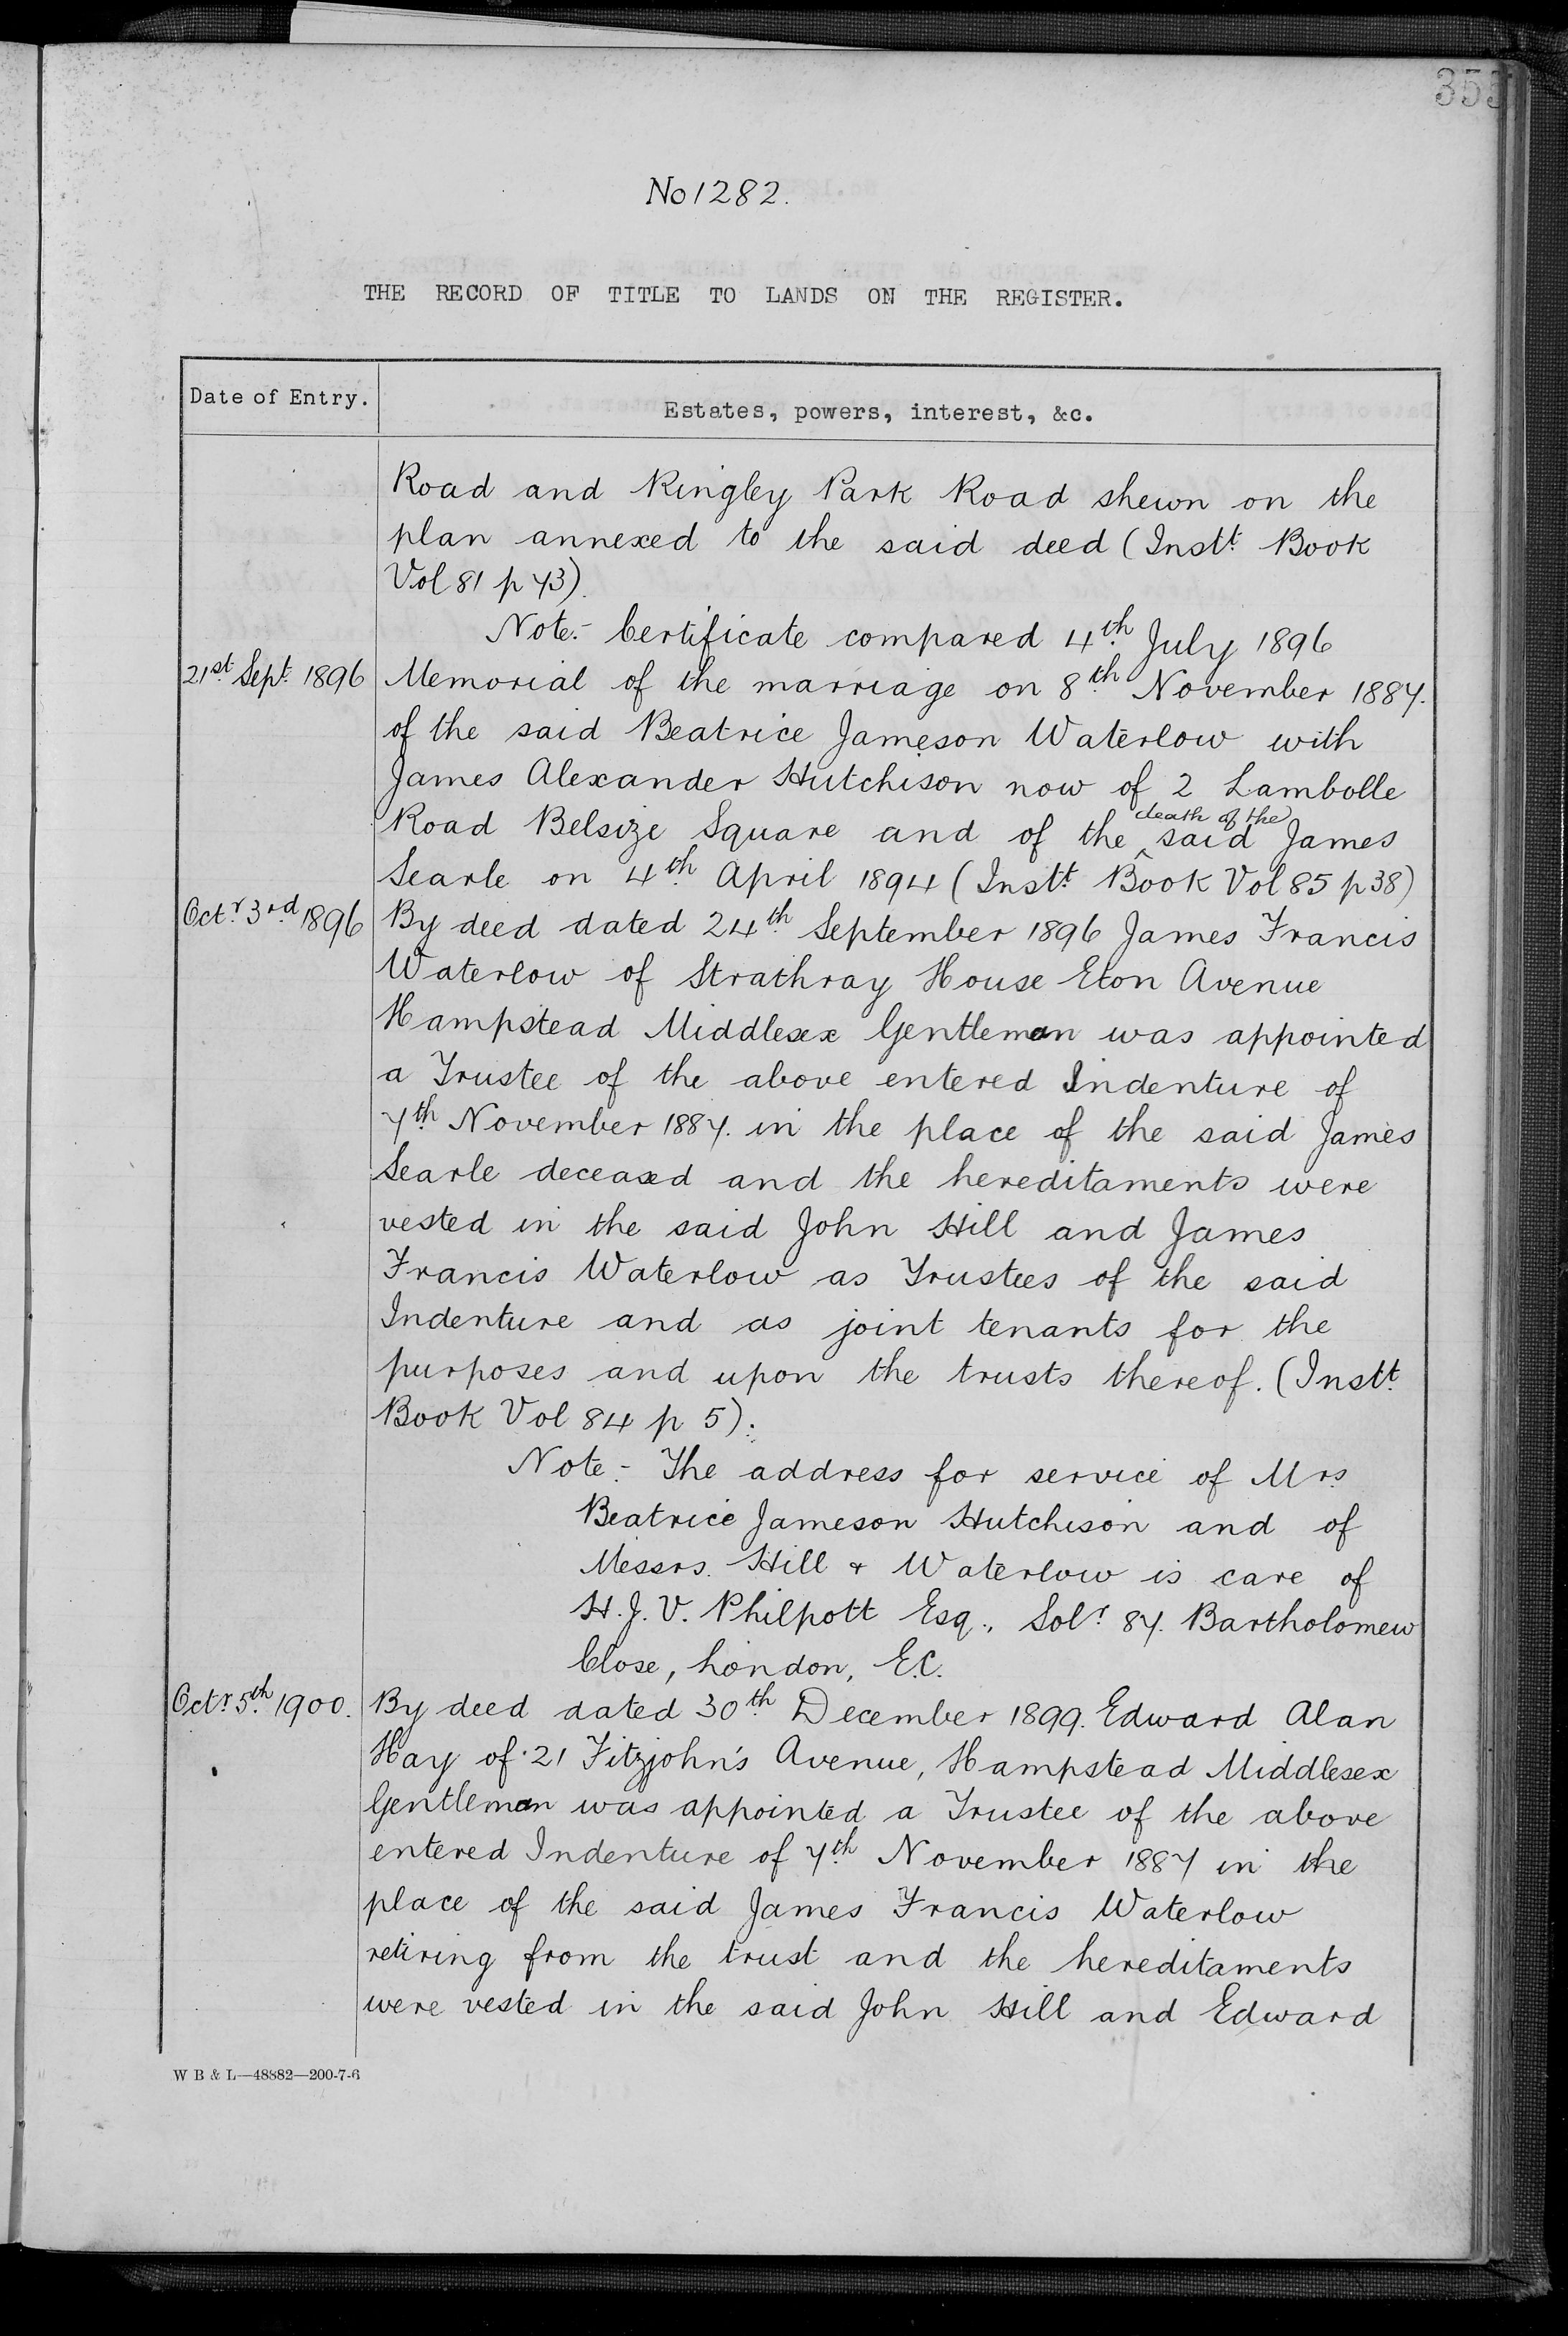 No 1282.
THE RECORD OF TITLE TO LANDS ON THE REGISTER.
Date of Entry.
Estates, powers, interest, &c.
Road and Ringley Park Road shewn on the
plan annexed to the said deed (Instt. Book
Vol 81 p 73).
Note:- Certificate compared 4th. July 1896
21st. Sept. 1896 Memorial of the marriage on 8th. November 1887.
of the said Beatrice Jameson Waterlow with
James Alexander Hutchison now of 2 Lambolle
death of the
Road Belsize Square and of the ^ said James
Searle on 4th. April 1894 (Instt. Book Vol 85 p 38)
Octr. 3rd. 1896 By deed dated 24th. September 1896 James Francis
Waterlow of Strathray House Eton Avenue
Hampstead Middlesex Gentleman was appointed
a Trustee of the above entered Indenture of
7th. November 1887. in the place of the said James
Searle deceased and the hereditaments were
vested in the said John Hill and James
Francis Waterlow as Trustees of the said
Indenture and as joint tenants for the
purposes and upon the trusts thereof. (Instt.
Book Vol 84 p 5).
Note:- The address for service of Mrs.
Beatrice Jameson Hutchison and of
Messrs. Hill & Waterlow is care of
H. J. V. Philpott Esq., Solr. 87. Bartholomew
Close, London, E.C.
Octr. 5th. 1900. By deed dated 30th. December 1899. Edward Alan
Hay of 21 Fitzjohn's Avenue, Hampstead Middlesex
Gentleman was appointed a Trustee of the above
entered Indenture of 7th. November 1887 in the
place of the said James Francis Waterlow
retiring from the trust and the hereditaments
were vested in the said John Hill and Edward
W B & L—48882—200-7-6